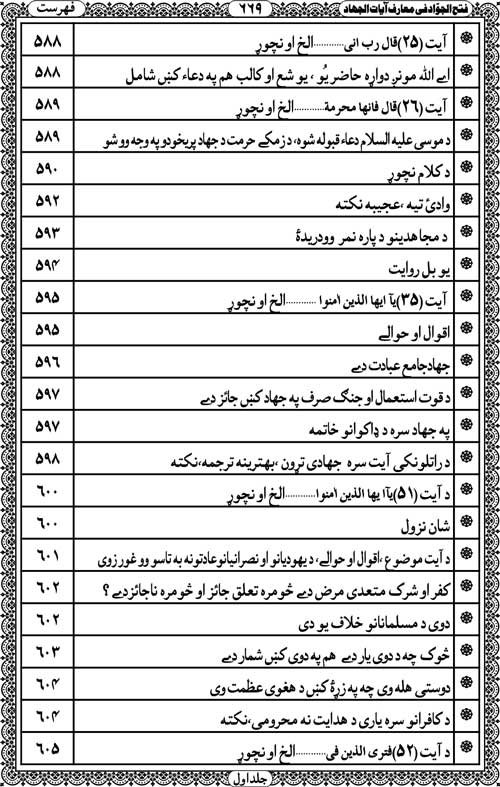 فتح الجوّاد فى معارف آيات الجهاد ٦٦٩ فهرست
آيت (۲۵) قال رب انى............الخ او نچوړ ۵۸۸
اے الله مونږ دواړه حاضر يُو ، يو شع او كالب هم په دعاء كښ شامل ۵۸۸
آيت (۲٦) قال فانها محرمة............الخ او نچوړ ۵۸۹
د موسى عليه السلام دعاء قبوله شوه، د زمكے حرمت د جهاد پريخودو په وجه وو شو ۵۸۹
د كلام نچوړ ۵۹۰
وادئ تيه ،عجيبه نكته ۵۹۲
د مجاهدينو د پاره نمر وودريدۀ ۵۹۳
يو بل روايت ۵۹۴
آيت (۳۵) يآ ايها الذين امنوا ............الخ او نچوړ ۵۹۵
اقوال او حوالے ۵۹۵
جهاد جامع عبادت دے ۵۹٦
د قوت استعمال او جنګ صرف په جهاد كښ جائز دے ۵۹۷
په جهاد سره د ډاكوانو خاتمه ۵۹۷
د راتلونكى آيت سره جهادى تړون ،بهترينه ترجمه،نكته ۵۹۸
د آيت (۵۱) يآا يها الذين امنوا............الخ او نچوړ ٦۰۰
شان نزول ٦۰۰
د آيت موضوع ،اقوال او حوالے، د يهوديانو او نصرانيانو عادتونه به تاسو وو غورزوى ٦۰۱
كفر او شرک متعدى مرض دے څومره تعلق جائز او څومره ناجائز دے ؟ ٦۰۲
دوى د مسلمانانو خلاف يو دى ٦۰۲
څوک چه د دوى يار دے هم په دوى كښ شمار دے ٦۰۳
دوستى هله وى چه په زړۀ كښ د هغوى عظمت وى ٦۰۴
د كافرانو سره يارى د هدايت نه محرومى،نكته ٦۰۴
د آيت (۵۲) فترى الذين فى............الخ او نچوړ ٦۰۵
جلد اول